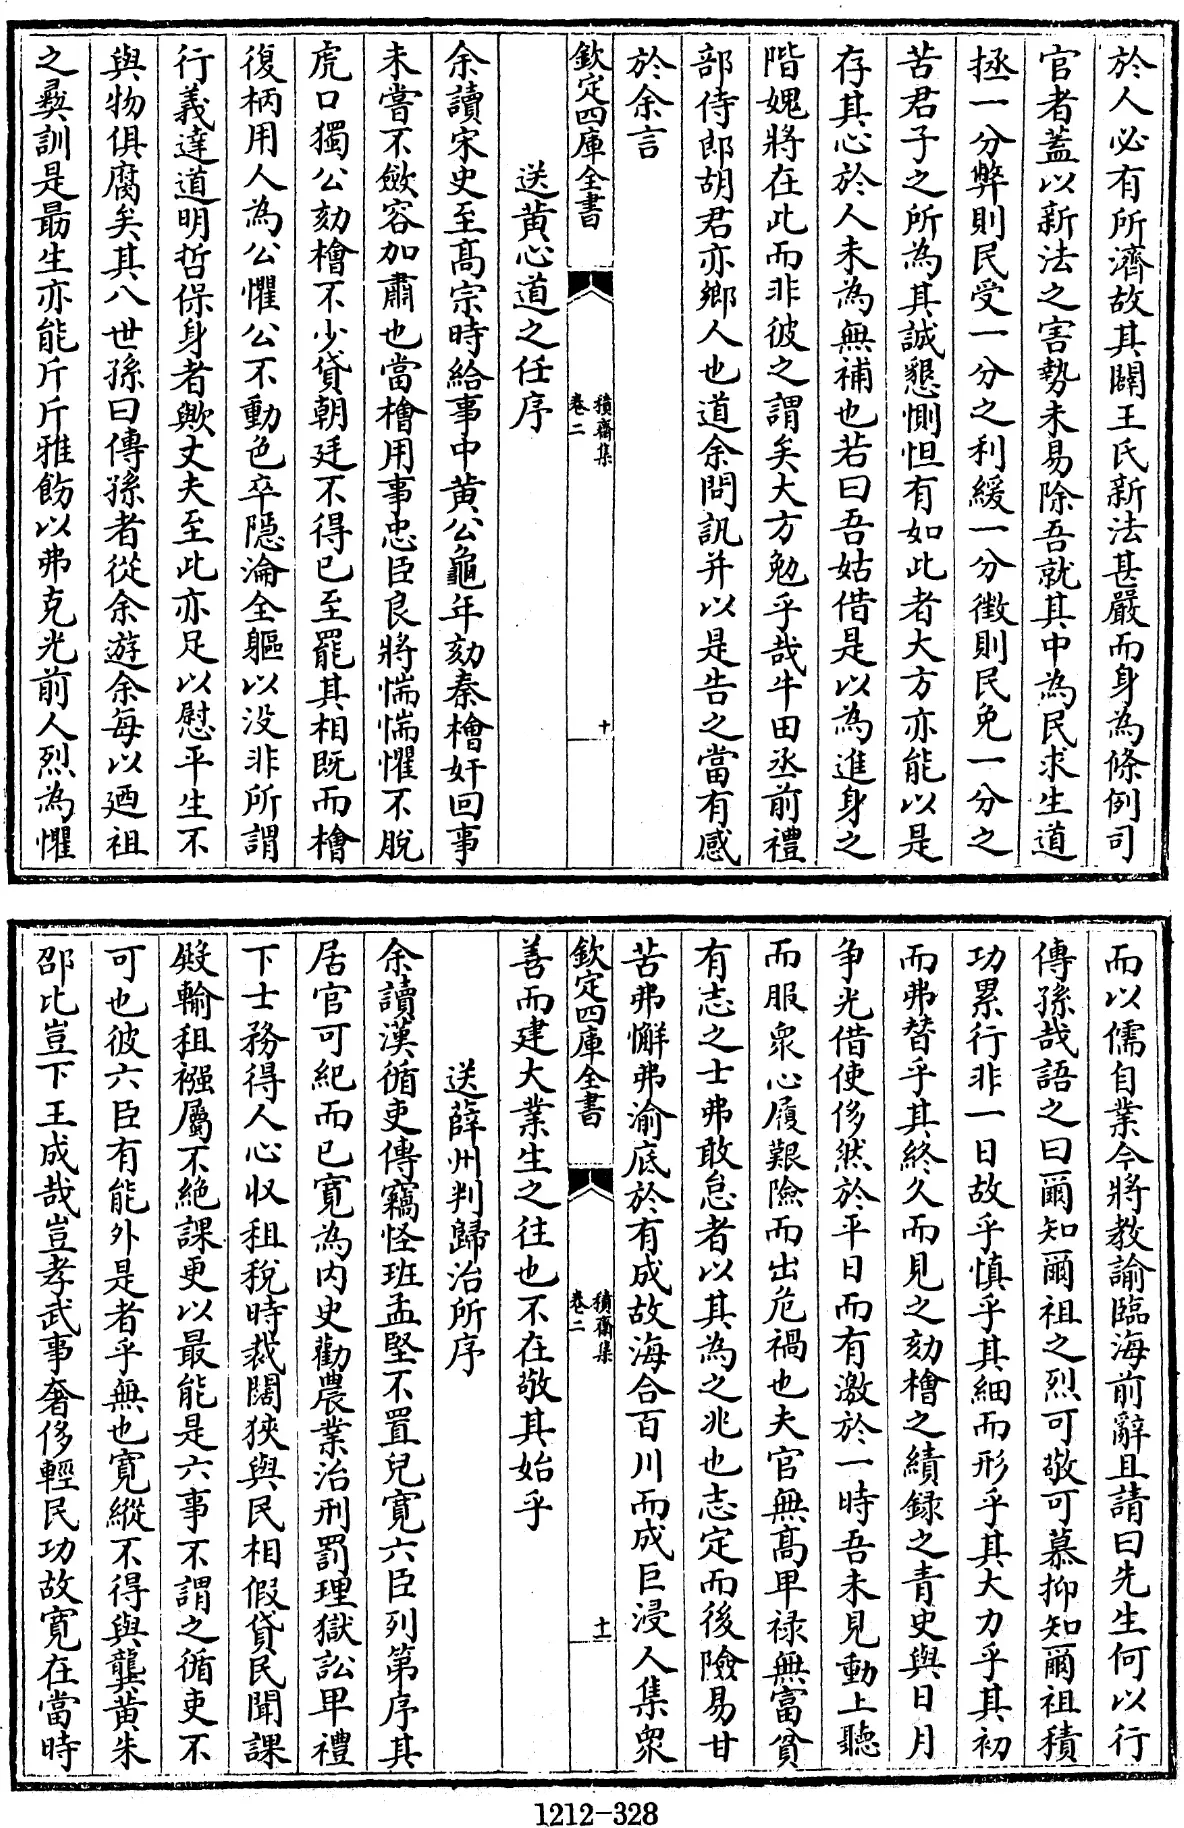 於人必有所濟故其闢王氏新法甚嚴而身為條例司
官者蓋以新法之害勢未易除吾就其中為民求生道
拯一分弊則民受一分之利緩一分徴則民免一分之
苦君子之所為其誠懇惻怛有如此者大方亦能以是
存其心於人未為無補也若曰吾姑借是以為進身之
階媿將在此而非彼之謂矣大方勉乎哉牛田丞前禮
部侍郎胡君亦鄉人也道余問訊并以是告之當有感
於余言
欽定四庫全書
積齋集
卷二
十
送黄心道之任序
余讀宋史至髙宗時給事中黄公龜年劾秦檜奸回事
未嘗不斂容加肅也當檜用事忠臣良將惴惴懼不脫
虎口獨公劾檜不少貸朝廷不得已至罷其相既而檜
復柄用人為公懼公不動色卒隠淪全軀以没非所謂
行義達道明哲保身者歟丈夫至此亦足以慰平生不
與物俱腐矣其八世孫曰傳孫者從余遊余每以廼祖
之彛訓是朂生亦能斤斤雅飭以弗克光前人烈為懼
而以儒自業今將教諭臨海前辭且請曰先生何以行
傳孫哉語之曰爾知爾祖之烈可敬可慕抑知爾祖積
功累行非一日故乎慎乎其細而形乎其大力乎其初
而弗替乎其終久而見之劾檜之績録之青史與日月
争光借使侈然於平日而有激於一時吾未見動上聽
而服衆心履艱險而出危禍也夫官無髙卑禄無富貧
有志之士弗敢怠者以其為之兆也志定而後險易甘
苦弗懈弗渝底於有成故海合百川而成巨浸人集衆
善而建大業生之往也不在敬其始乎
欽定四庫全書
積齋集
卷二
十一
送薛州判歸治所序
余讀漢循吏傳竊怪班孟堅不置兒寛六臣列第序其
居官可紀而已寛為内史勸農業治刑罰理獄訟卑禮
下士務得人心収租稅時裁闊狹與民相假貸民聞課
殿輸租襁屬不絶課更以最能是六事不謂之循吏不
可也彼六臣有能外是者乎無也寛縱不得與龔黄朱
邵比豈下王成哉豈孝武事奢侈輕民功故寛在當時
1212-328